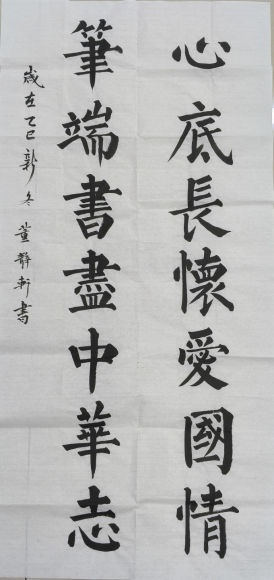 心底長懷愛國情
筆端書盡中華志
歲在乙巳新冬 董靜軒書